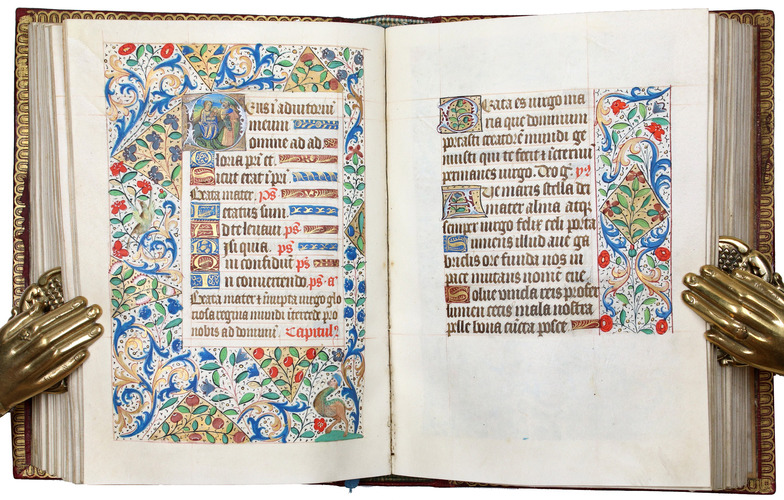 Eus i adiutoriũ
meum
omine ad ad
loria pr̃i et.
icut erat i pri
Beata mater. p̃s
etatus sum
d te leuaui p̃s
isi quia. p̃s
in confidũt p̃s
in conuertendo. p̃s a
Beata mater ⁊ inupta uirgo glo
riosa regina mundi ĩtercede pro
nobis ad dominũ. Capitul
Eata es uirgo ma
ria que dominum
portasti creatorẽ mundi ge
nuisti qui te fecit ⁊ ĩeternũ
permanes uirgo. Deo gr̃. ym̃
Ue maris stella dei
mater alma atq
semper uirgo felix celi porta
umens illud aue ga
brielis ore funda nos in
pace mutans nomẽ eue
Solue uincla reis profer
lumen cecis mala nostra
pelle bona cũcta posce